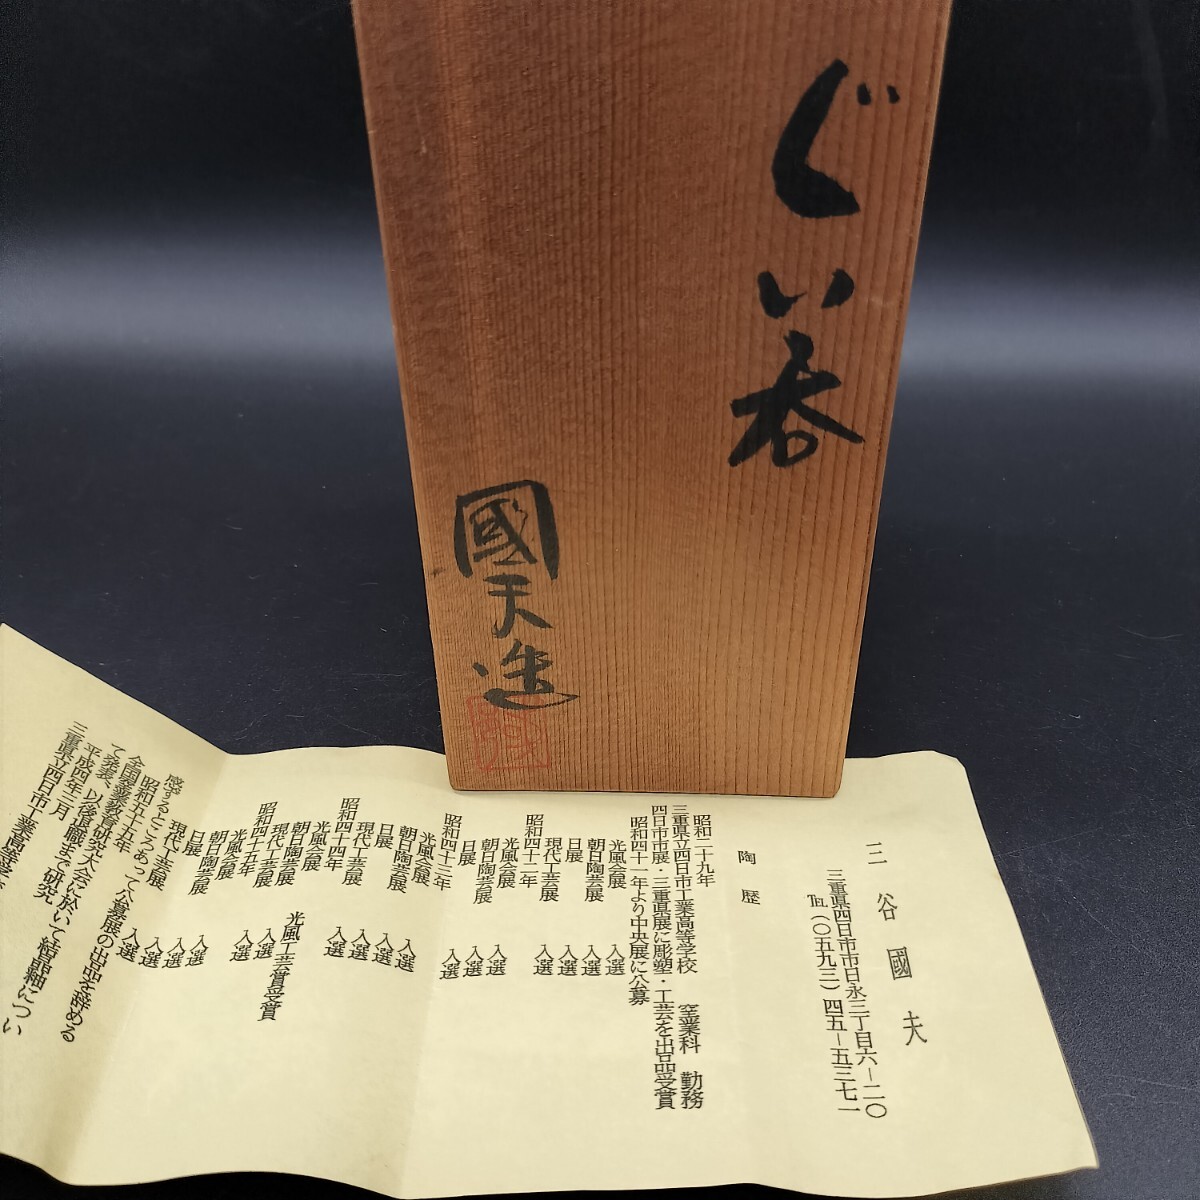 ぐい呑
國天造
三谷國夫
三重県四日市市日永三丁目六ー二〇
℡(〇五九三)四五ー五三七一
陶歴
昭和二十九年
三重県立四日市工業高等学校 窯業科 勤務
四日市市展・三重県展に彫塑・工芸を出品受賞
昭和四十一年より中央展に公募
光風会展 入選
朝日陶芸展 入選
日展 入選
現代工芸展 入選
昭和四十二年
光風会展 入選
朝日陶芸展 入選
日展 入選
昭和四十三年
光風会展 入選
朝日陶芸展 入選
日展 入選
現代工芸展 入選
昭和四十四年
光風会展
朝日陶芸展 光風工芸賞受賞
現代工芸展 入選
昭和四十五年 入選
光風会展
朝日陶芸展 入選
日展 入選
現代工芸展 入選
感ずるところあって公募展の出品を辞める 入選
昭和五十五年
全国窯業教育研究大会に於いて結晶釉につい
て発表、以後退職まで研究
平成四年三月
三重県立四日市工業高等学校